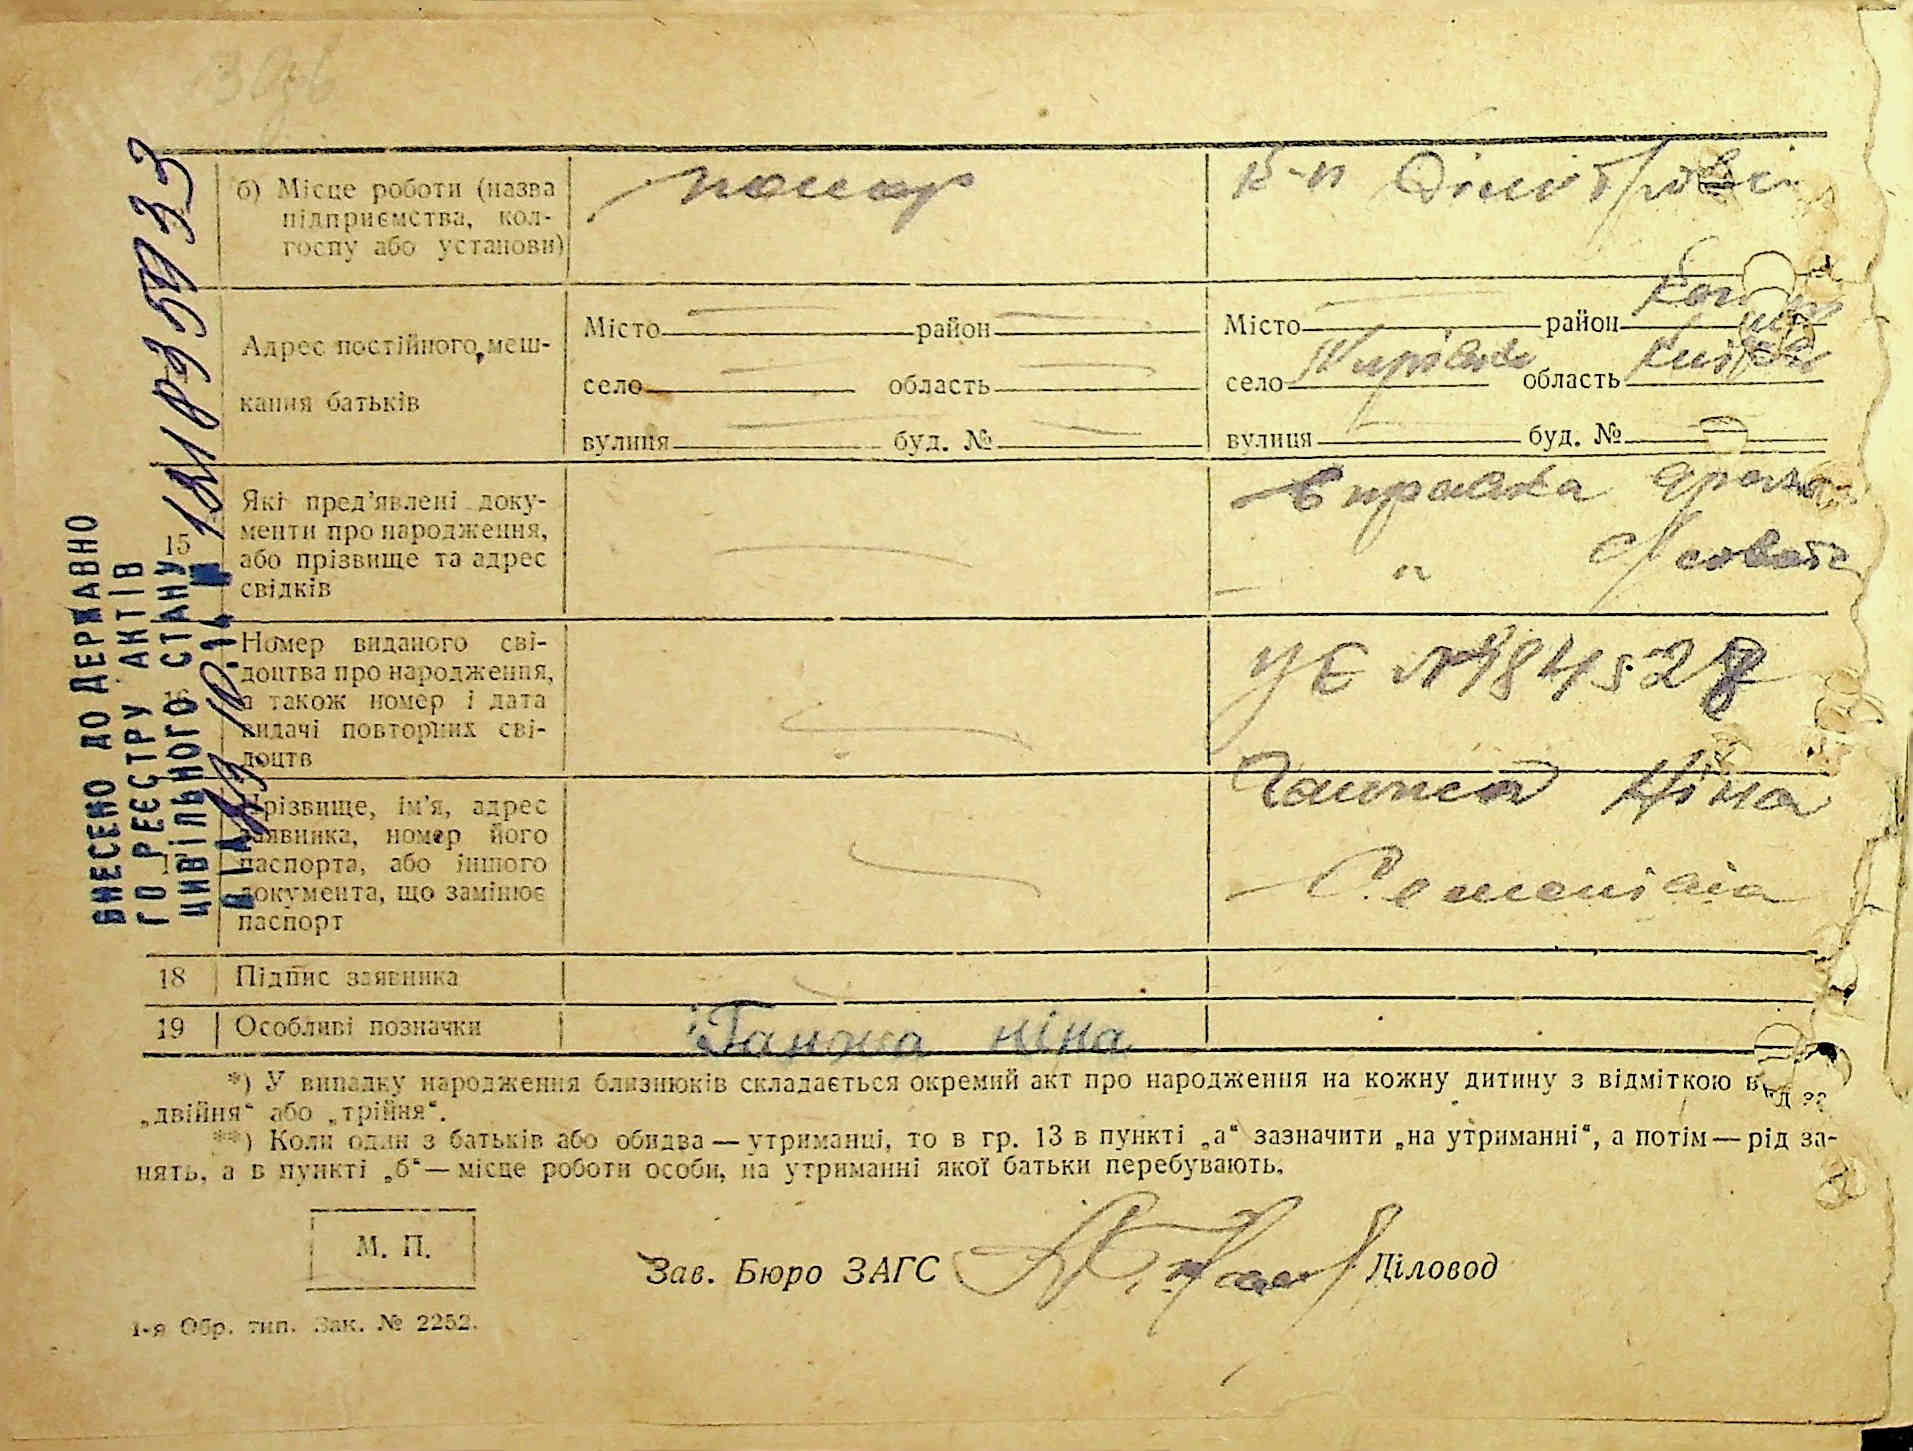 б) Місце роботи (назва
підприємства, кол-
госпу або установи)
помер
Адрес постійного меш-
кання батьків
Місто район
село область
вулиця буд. №
Місто район
село область
вулиця буд. №
15
Які пред'явлені доку-
менти про народження,
або прізвище та адрес
свідків
16
Номер виданого сві-
доцтва про народження,
а також номер і дата
видачі повторних сві-
доцтв
УЄ №
17
Прізвище, ім'я, адрес
заявника, номер його
паспорта, або іншого
документа, що замінює
паспорт
Ганжа Ніна
18 Підпис заявника
19 Особливі позначки
Ганжа ніна
*) У випадку народження близнюків складається окремий акт про народження на кожну дитину з відміткою
„двійня“ або „трійня“.
**) Коли один з батьків або обидва — утриманці, то в гр. 13 в пункті „а“ зазначити „на утриманні“, а потім — рід за-
нять, а в пункті „б“ — місце роботи особи, на утриманні якої батьки перебувають.
М. П.
Зав. Бюро ЗАГС Діловод
1-я Обр. тип. Зак. № 2252.
ВНЕСЕНО ДО ДЕРЖАВНО
ГО РЕЄСТРУ АКТІВ
ЦИВІЛЬНОГО СТАНУ